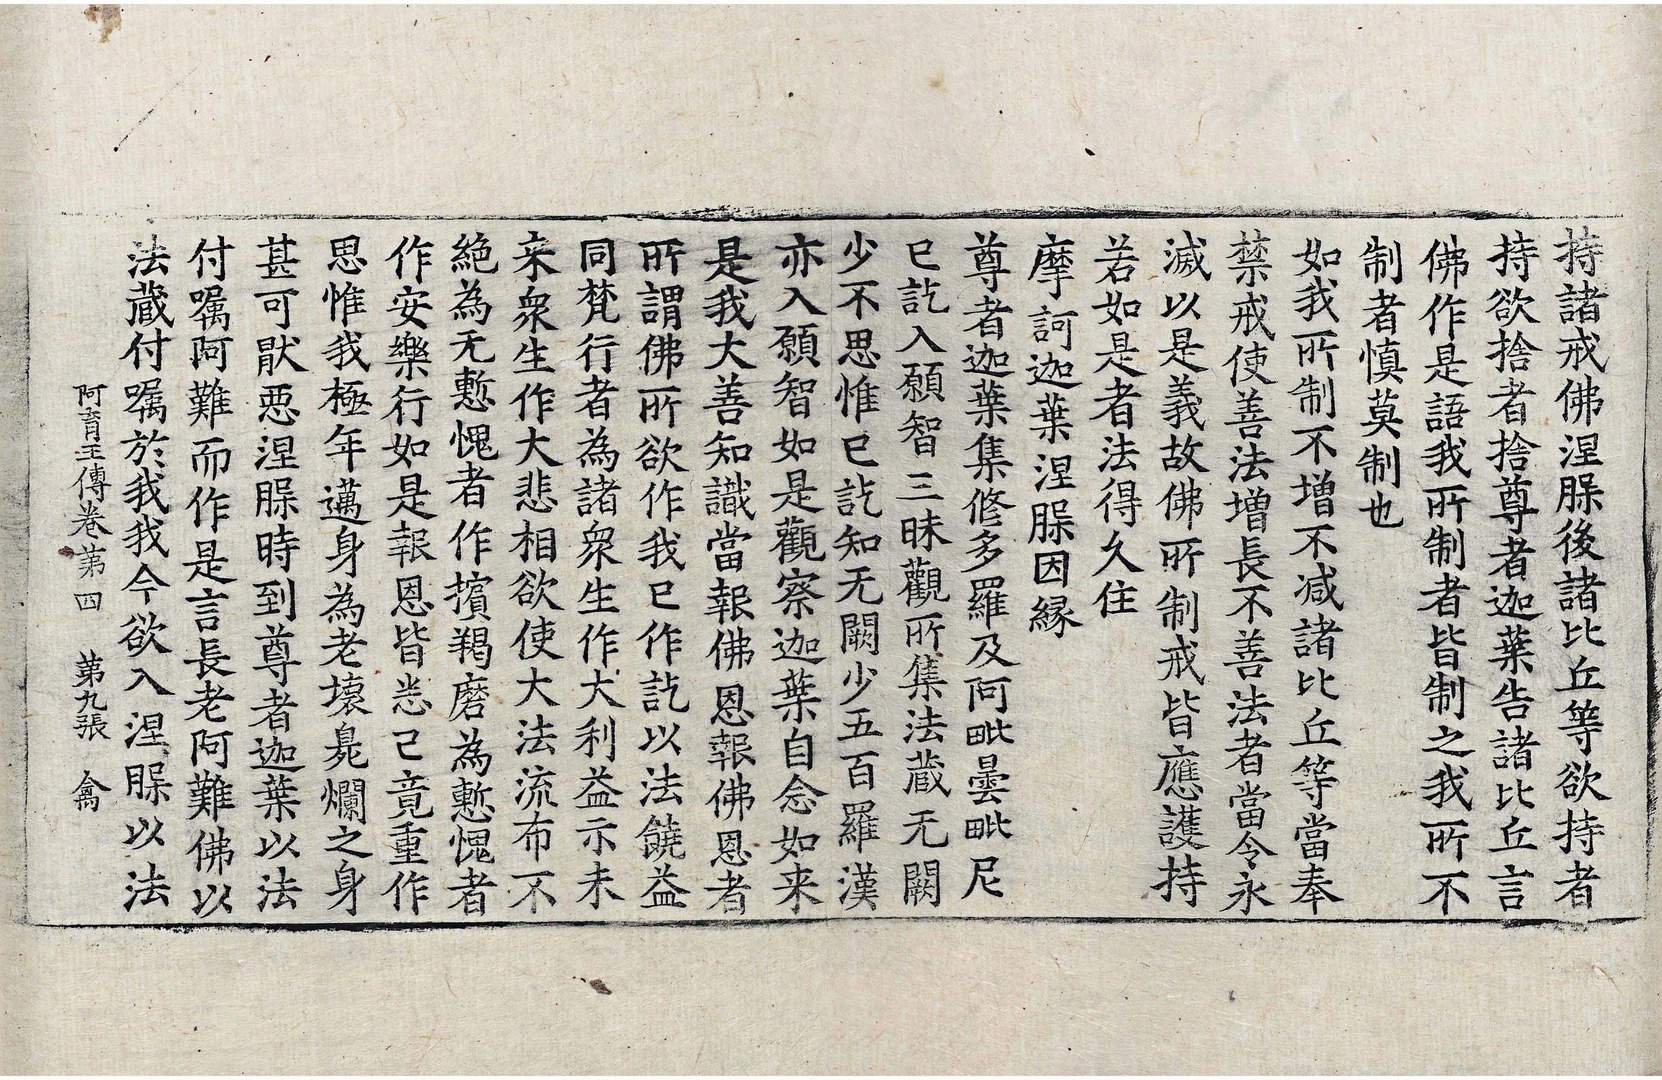 持諸戒佛涅槃後諸比丘等欲持者
持欲捨者捨尊者迦葉告諸比丘言
佛作是語我所制者皆制之我所不
制者慎莫制也
如我所制不增不減諸比丘等當奉
禁戒使善法增長不善法者當令永
滅以是義故佛所制戒皆應護持
若如是者法得久住
摩訶迦葉涅槃因緣
尊者迦葉集修多羅及阿毗曇毗尼
已訖入願智三昧觀所集法藏无闕
少不思惟已訖知无闕少五百羅漢
亦入願智如是觀察迦葉自念如来
是我大善知識當報佛恩報佛恩者
所謂佛所欲作我已作訖以法饒益
同梵行者為諸衆生作大利益示未
来衆生作大悲相欲使大法流布不
絕為无慙愧者作擯羯磨為慙愧者
作安樂行如是報恩皆悉已竟重作
思惟我極年邁身為老壞臰爛之身
甚可猒惡涅槃時到尊者迦葉以法
付嘱阿難而作是言長老阿難佛以
法藏付嘱於我我今欲入涅槃以法
阿育王傳卷第四 第九張 禽